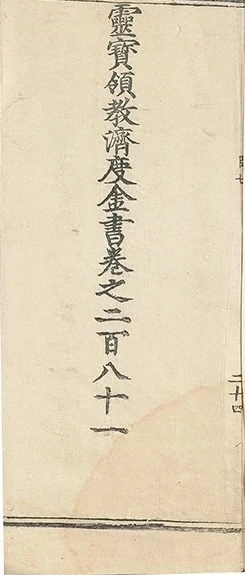 靈寶領教濟度金書卷之二百八十一
二十四